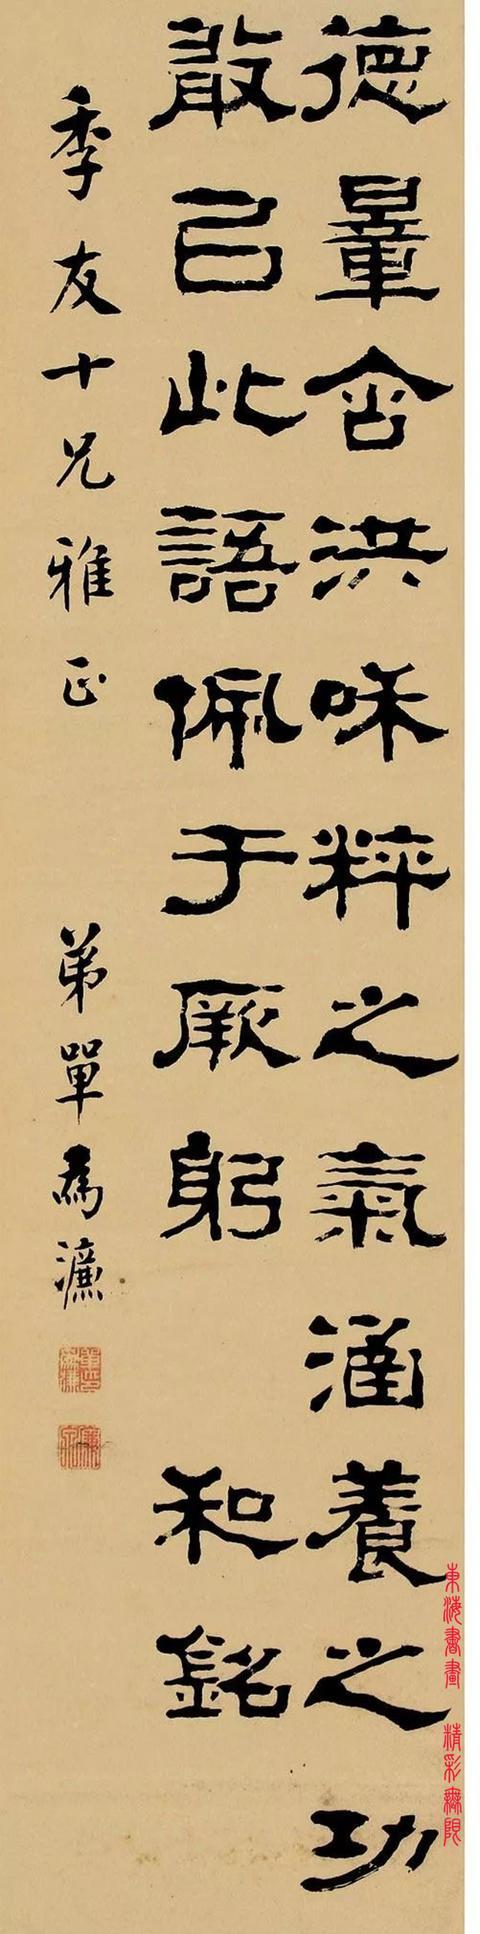 德量含洪咊粹之氣涵養之功
敢㠯此語佩于厥躬 和銘
季友十兄雅正 弟單為濂
東海書畫 精彩無限